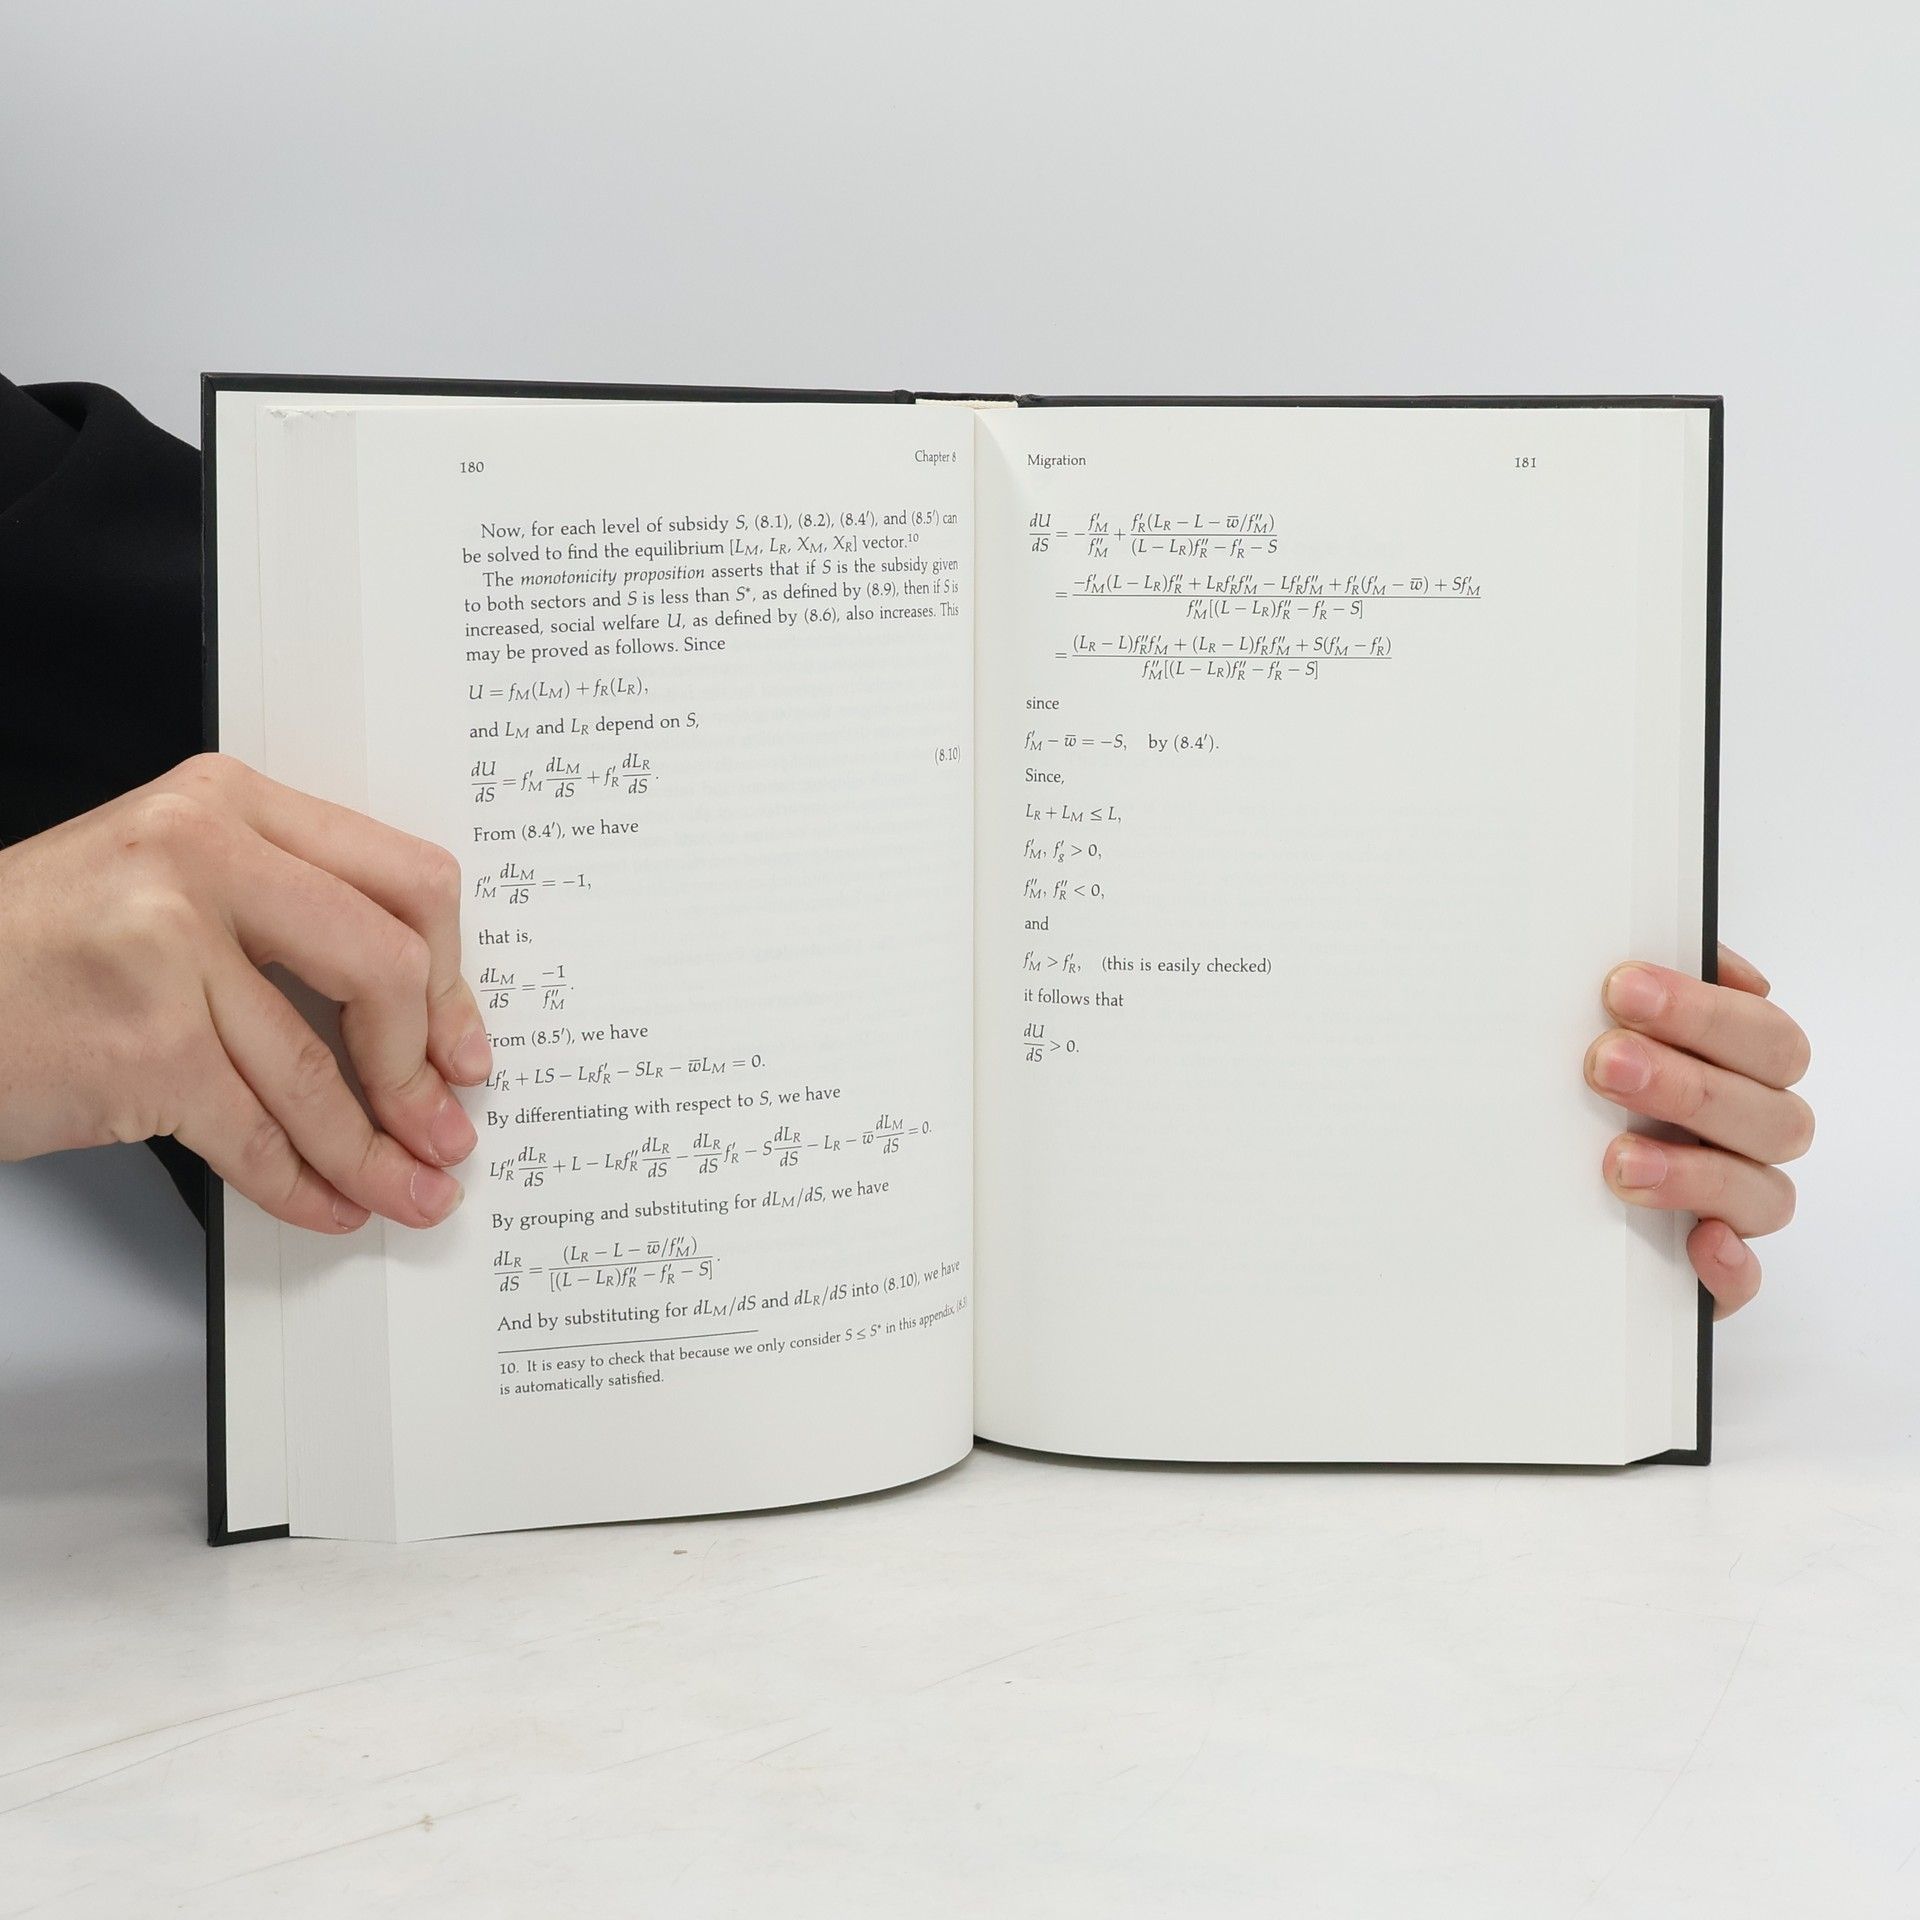 180
Chapter 8
Now, for each level of subsidy S, (8.1), (8.2), (8.4′), and (8.5′) can
be solved to find the equilibrium [L_M, L_R, X_M, X_R] vector.¹⁰
The monotonicity proposition asserts that if S is the subsidy given
to both sectors and S is less than S*, as defined by (8.9), then if S is
increased, social welfare U, as defined by (8.6), also increases. This
may be proved as follows. Since
U = f_M(L_M) + f_R(L_R),
and L_M and L_R depend on S,
dU/dS = f′_M dL_M/dS + f′_R dL_R/dS. (8.10)
From (8.4′), we have
f″_M dL_M/dS = −1,
that is,
dL_M/dS = −1/f″_M.
From (8.5′), we have
Lf′_R + LS − L_Rf′_R − SL_R − w̅L_M = 0.
By differentiating with respect to S, we have
Lf″_R dL_R/dS + L − L_Rf″_R dL_R/dS − dL_R/dS f′_R − S dL_R/dS − L_R − w̅ dL_M/dS = 0.
By grouping and substituting for dL_M/dS, we have
dL_R/dS = (L_R − L − w̅/f″_M)/[(L − L_R)f″_R − f′_R − S].
And by substituting for dL_M/dS and dL_R/dS into (8.10), we have
10. It is easy to check that because we only consider S ≤ S* in this appendix,
is automatically satisfied.
Migration
181
dU/dS = −f′_M/f″_M + f′_R(L_R − L − w̅/f″_M)/(L − L_R)f″_R − f′_R − S
= −f′_M(L − L_R)f″_R + L_Rf′_Rf″_M − Lf′_Rf″_M + f′_R(f′_M − w̅) + Sf′_M/f″_M[(L − L_R)f″_R − f′_R − S]
= (L_R − L)f″_Rf′_M + (L_R − L)f′_Rf″_M + S(f′_M − f′_R)/f″_M[(L − L_R)f″_R − f′_R − S]
since
f′_M − w̅ = −S, by (8.4′).
Since,
L_R + L_M ≤ L,
f′_M, f′_g > 0,
f″_M, f″_R < 0,
and
f′_M > f′_R, (this is easily checked)
it follows that
dU/dS > 0.